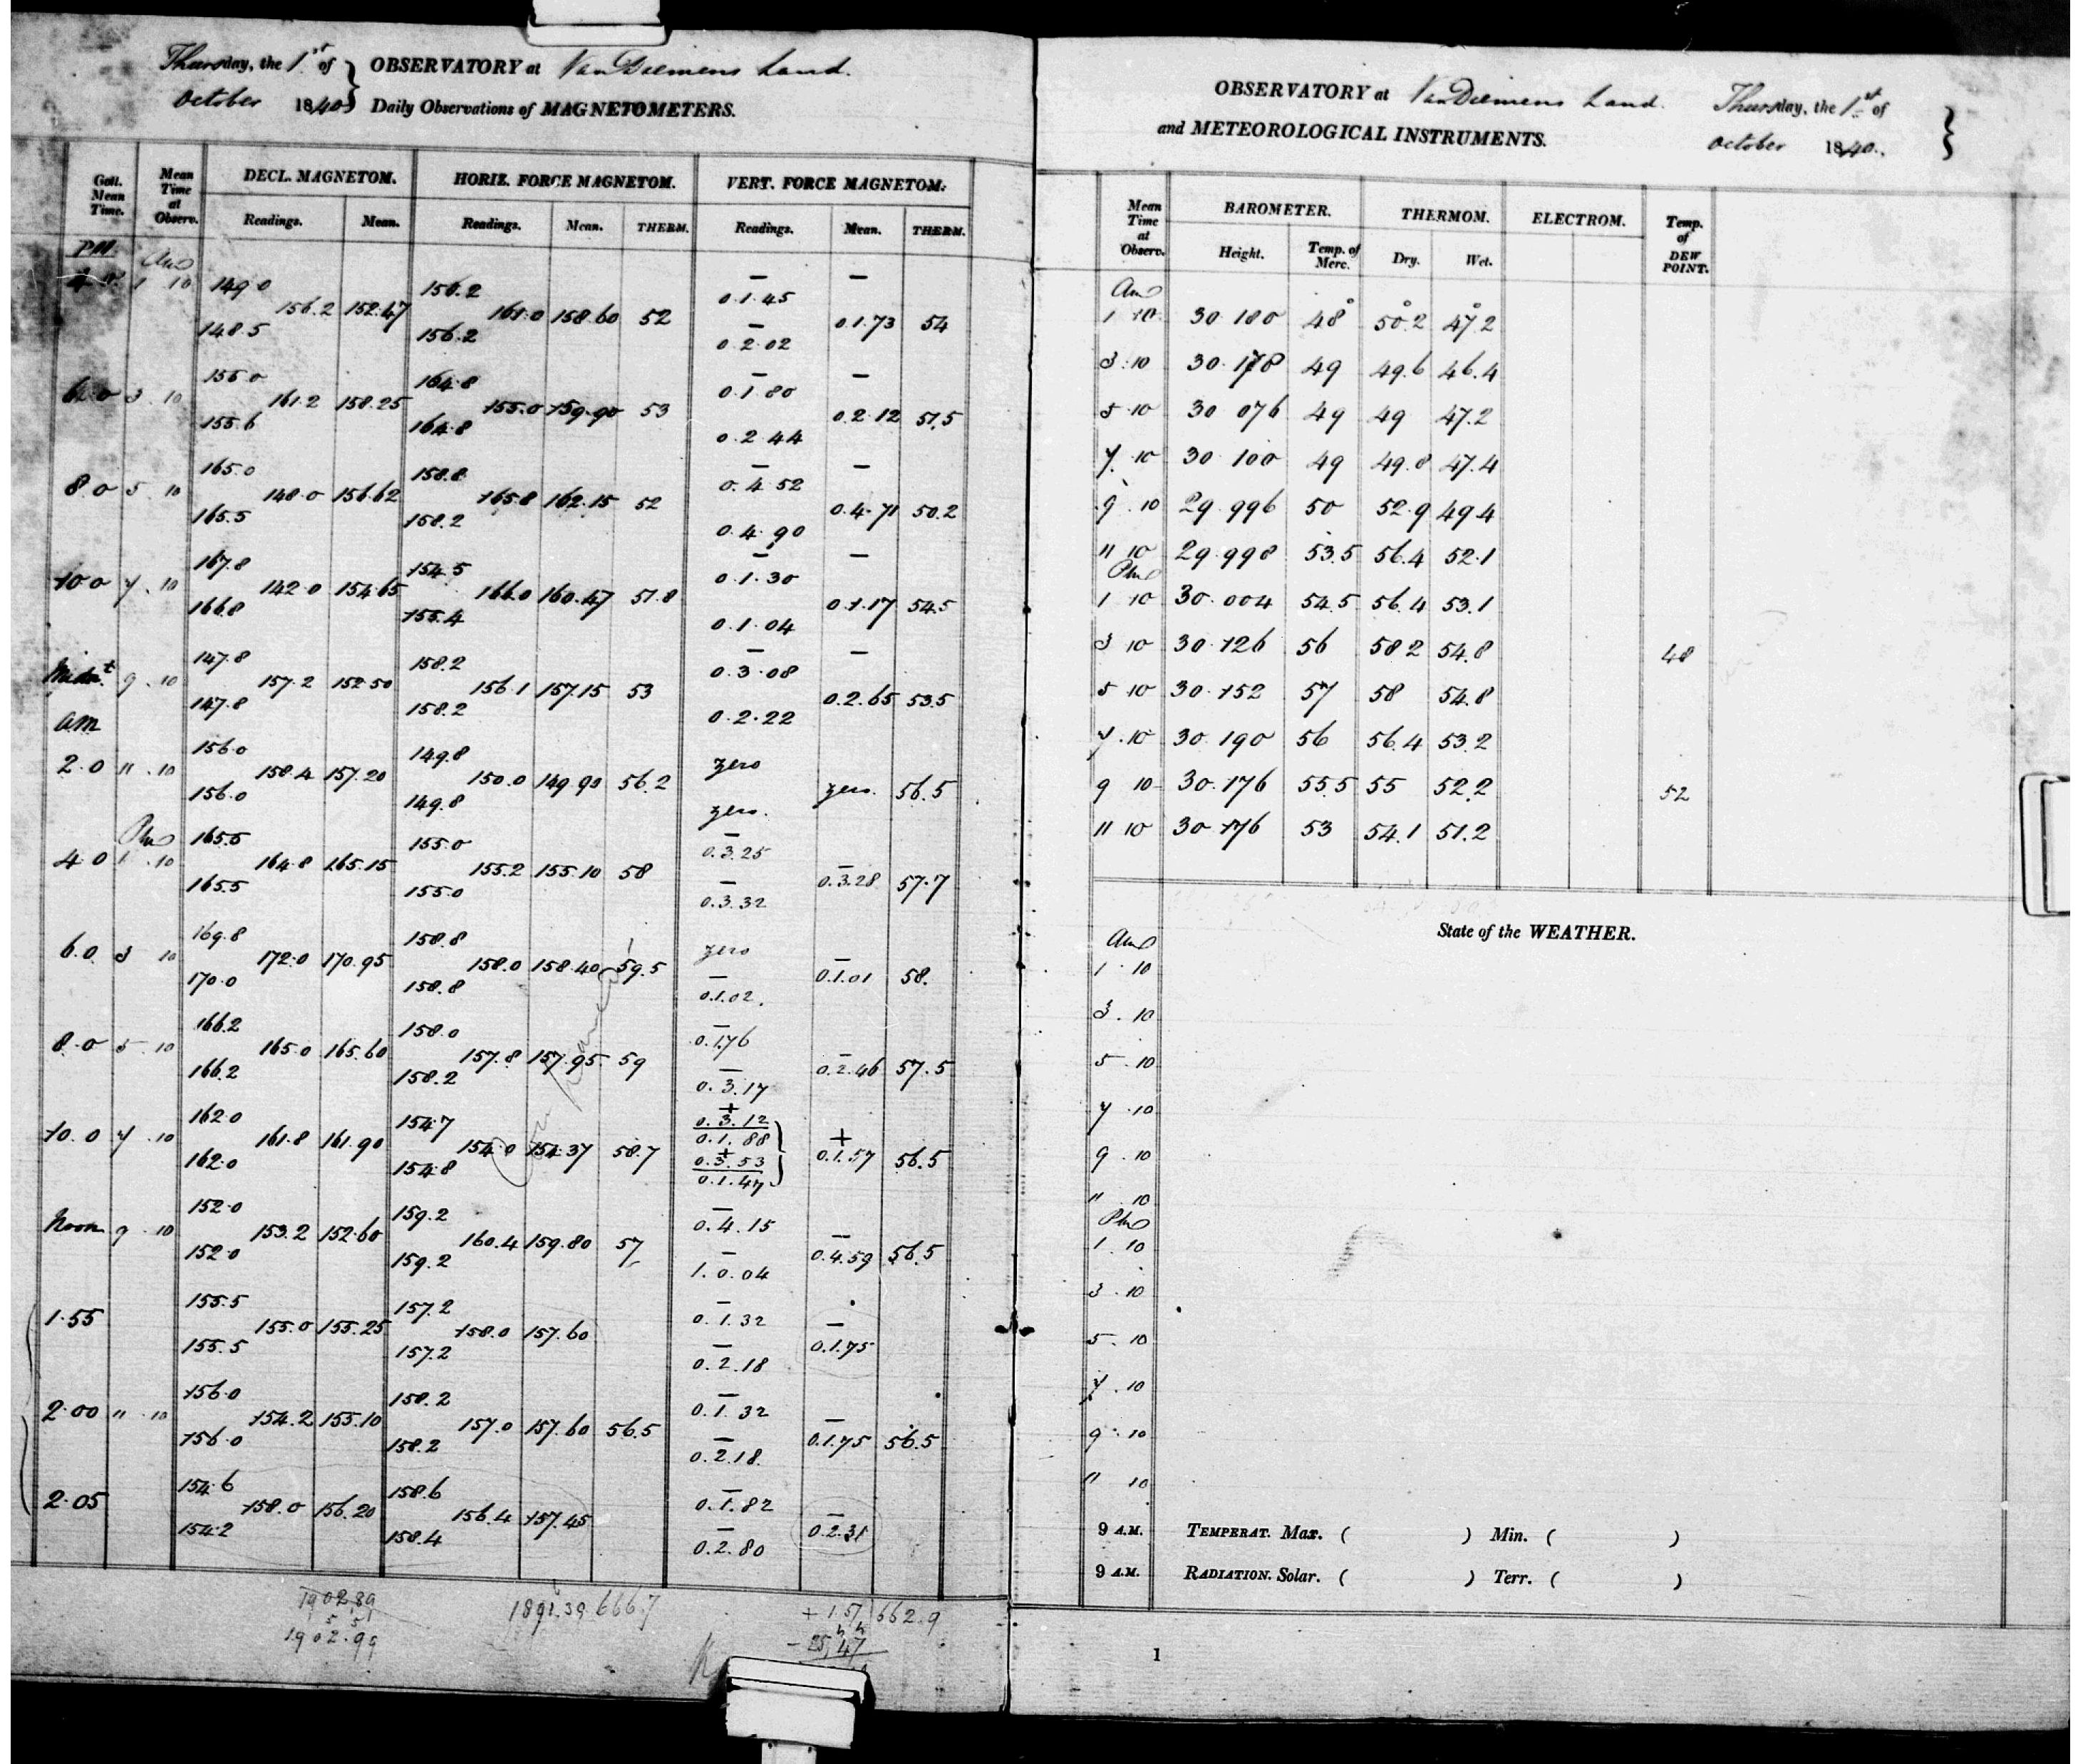 Thursday, the 1st of
October 1840
OBSERVATORY at Van Diemens Land.
Daily Observations of MAGNETOMETERS.
Gott. Mean Time. Mean Time at Observ. DECL. MAGNETOM. HORIZ. FORCE MAGNETOM. VERT. FORCE MAGNETOM.
Readings. Mean. Readings. Mean. THERM. Readings. Mean. THERM.
PM. Am
4.0 1 10 149.0 156.2 — —
148.5 156.2 152.47 156.2 161.0 158.60 52 0.1.45 — 0.2.02 0.1.73 54
6.0 3 10 155.0 164.8 — —
155.6 161.2 158.25 164.8 155.0 159.90 53 0.1.80 0.2.44 0.2.12 51.5
8.0 5.10 165.0 158.8 — —
165.5 148.0 156.62 158.2 165.8 162.15 52 0.4.52 0.4.90 0.4.71 50.2
10.0 7.10 167.8 154.5 — —
166.8 142.0 154.65 155.4 166.0 160.47 51.8 0.1.30 0.1.04 0.1.17 54.5
Midnt 9.10 147.8 158.2 — —
147.8 157.2 152.50 158.2 156.1 157.15 53 0.3.08 0.2.22 0.2.65 53.5
am
2.0 11.10 156.0 149.8 zero
156.0 158.4 157.20 149.8 150.0 149.90 56.2 zero. zero. 56.5
Pm
4.0 1.10 165.5 155.0 — 0.3.25
165.5 164.8 165.15 155.0 155.2 155.10 58 — 0.3.32 — 0.3.28 57.7
6.0 3 10 169.8 158.8 zero
170.0 172.0 170.95 158.8 158.0 158.40 59.5 — 0.1.02. — 0.1.01 58.
8.0 5.10 166.2 158.0 — 0.1.76
166.2 165.0 165.60 158.2 157.8 157.95 59 — 0.3.17 — 0.2.46 57.5
10.0 7.10 162.0 154.7 + 0.3.12 0.1.88
162.0 161.8 161.90 154.8 154.0 154.37 58.7 + 0.3.53 0.1.47 + 0.1.57 56.5
Noon 9.10 152.0 159.2 — 0.4.15
152.0 153.2 152.60 159.2 160.4 159.80 57 — 1.0.04 — 0.4.59 56.5
1.55 155.5 157.2 — 0.1.32
155.5 155.0 155.25 157.2 158.0 157.60 — 0.2.18 — 0.1.75
2.00 11.10 156.0 158.2 — 0.1.32
156.0 154.2 155.10 158.2 157.0 157.60 56.5 — 0.2.18 — 0.1.75 56.5
2.05 154.6 158.6 — 0.1.82
154.2 158.0 156.20 158.4 156.4 157.45 — 0.2.80 — 0.2.31
1902.89 1891.39 666.7 + 1.57 662.9
1902.99 - 25.47
OBSERVATORY at Van Diemens Land. Thursday, the 1st of
and METEOROLOGICAL INSTRUMENTS. October 1840.
Mean Time at Observ. BAROMETER. THERMOM. ELECTROM. Temp. of DEW POINT.
Height. Temp. of Merc. Dry. Wet.
Am
1 10 30.180 48° 50°.2 47°.2
3.10 30.178 49 49.6 46.4
5.10 30 076 49 49 47.2
7.10 30 100 49 49.8 47.4
9.10 29.996 50 52.9 49.4
11 10 29.998 53.5 56.4 52.1
Pm
1 10 30.004 54.5 56.4 53.1
3 10 30.126 56 58.2 54.8 48
5 10 30.152 57 58 54.8
7.10 30.190 56 56.4 53.2
9 10 30.176 55.5 55 52.2 52
11 10 30.176 53 54.1 51.2
State of the WEATHER.
Am
1.10
3.10
5.10
7.10
9.10
11.10
Pm
1.10
3.10
5.10
7.10
9.10
11 10
9 A.M. TEMPERAT. Max. ( ) Min. ( )
9 A.M. RADIATION. Solar. ( ) Terr. ( )
1